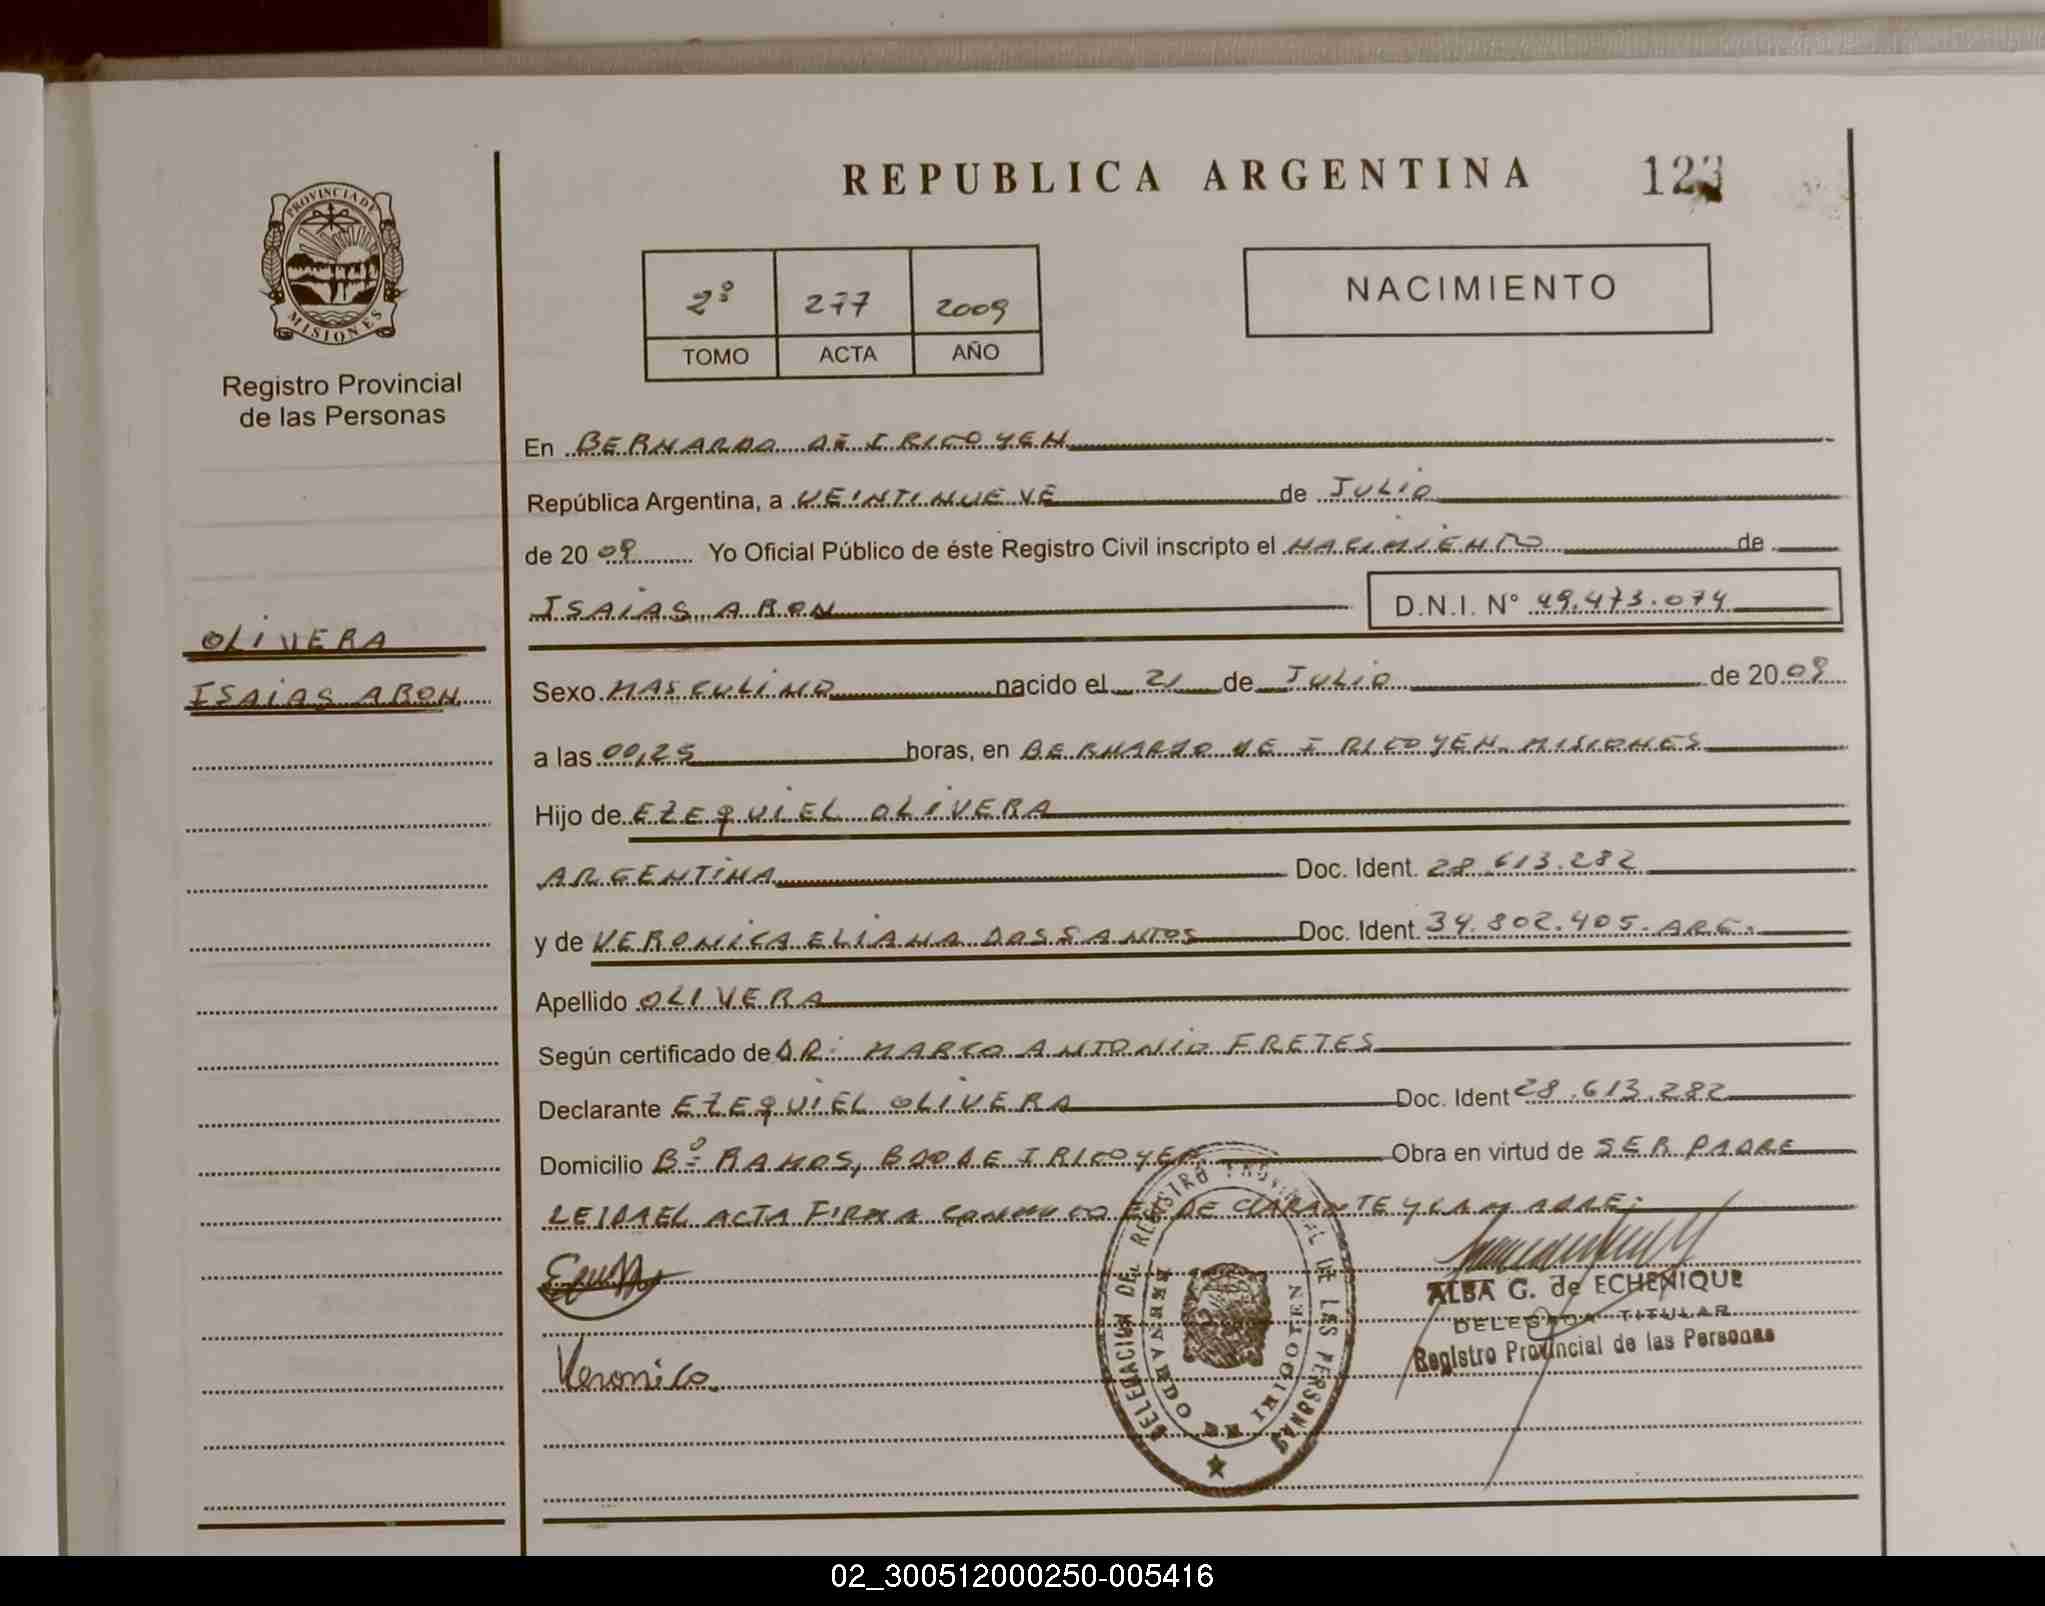 REPUBLICA ARGENTINA 123
PROVINCIA DE MISIONES
Registro Provincial
de las Personas
2º 277 2009
TOMO ACTA AÑO
NACIMIENTO
En BERNARDO DE IRIGOYEN
República Argentina, a VEINTINUEVE de JULIO
de 2009 Yo Oficial Público de éste Registro Civil inscripto el NACIMIENTO de
ISAIAS ARON D.N.I. N° 49.473.074
OLIVERA
ISAIAS ARON
Sexo MASCULINO nacido el 21 de JULIO de 2009
a las 00,25 horas, en BERNARDO DE IRIGOYEN. MISIONES
Hijo de EZEQUIEL OLIVERA
ARGENTINA Doc. Ident. 28.613.282
y de VERONICA ELIANA DOSSANTOS Doc. Ident. 34.802.405. ARG.
Apellido OLIVERA
Según certificado de DR: MARCO ANTONIO FRETES
Declarante EZEQUIEL OLIVERA Doc. Ident 28.613.282
Domicilio Bº RAMOS, BDO DE IRIGOYEN Obra en virtud de SER PADRE
LEIDA EL ACTA FIRMA CONMIGO EL DECLARANTE Y LA MADRE;
Veronica.
DELEGACION DEL REGISTRO PROVINCIAL DE LAS PERSONAS
BERNARDO DE IRIGOYEN
ALBA G. de ECHENIQUE
DELEGADA TITULAR
Registro Provincial de las Personas
02_300512000250-005416